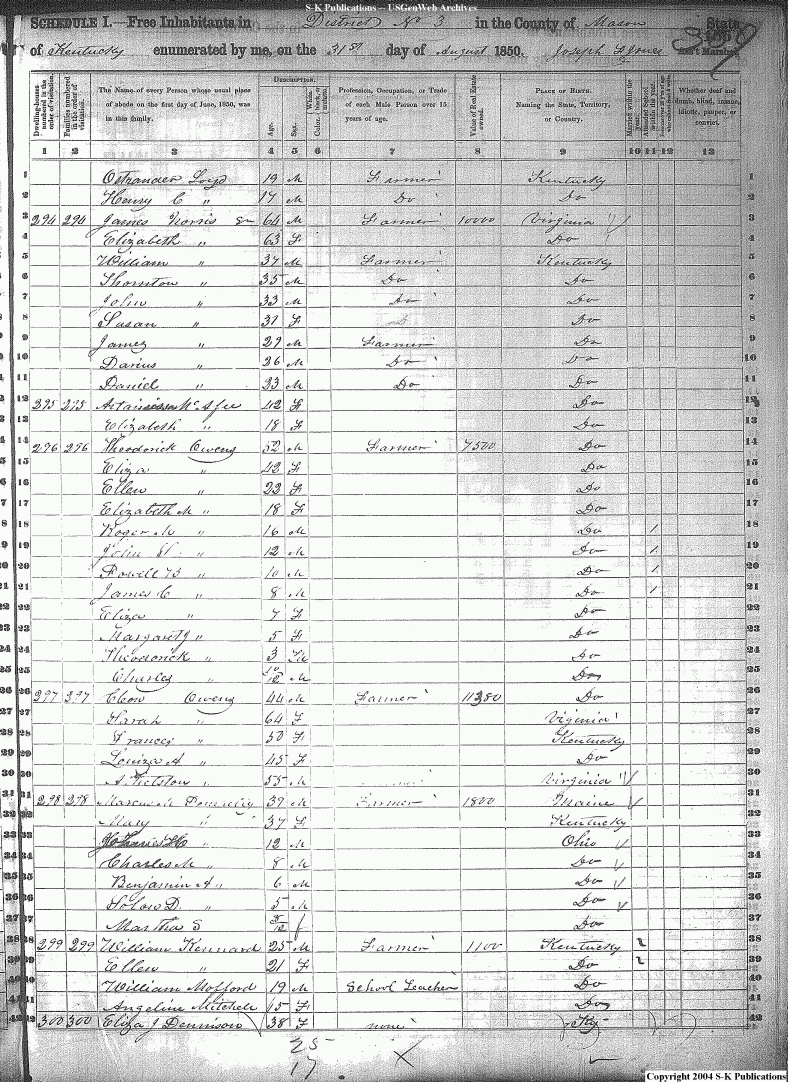 S-K Publications -- USGenWeb Archives
SCHEDULE I.—Free Inhabitants in District No 3 in the County of Mason State
of Kentucky enumerated by me, on the 31st day of August 1850. Joseph F Jones
Dwelling-houses numbered in the order of visitation.
Families numbered in the order of visitation.
The Name of every Person whose usual place of abode on the first day of June, 1850, was in this family.
Description.
Age.
Sex.
Color, White, black, or mulatto.
Profession, Occupation, or Trade of each Male Person over 15 years of age.
Value of Real Estate owned.
Place of Birth. Naming the State, Territory, or Country.
Married within the year.
Attended School within the year.
Whether deaf and dumb, blind, insane, idiotic, pauper, or convict.
1 2 3 4 5 6 7 8 9 10 11 12 13
1 Ostrander 19 M Farmer Kentucky 1
2 Henry C " 17 M Do Do 2
3 294 294 James Norris Sr 64 M Farmer 10000 Virginia 3
4 Elizabeth " 63 F Do 4
5 William " 37 M Farmer Kentucky 5
6 Thornton " 35 M Do Do 6
7 John " 33 M Do Do 7
8 Susan " 31 F Do 8
9 James " 29 M Farmer Do 9
10 Darius " 26 M Do Do 10
11 Daniel " 23 M Do Do 11
12 295 295 McAfee 42 F Do 12
13 Elizabeth " 18 F Do 13
14 296 296 Theodorick Owens 52 M Farmer 7500 Do 14
15 Eliza " 42 F Do 15
16 Ellen " 22 F Do 16
17 Elizabeth M " 18 F Do 17
18 Roger M " 16 M Do 1 18
19 John " 12 M Do 1 19
20 Powell B " 10 M Do 1 20
21 James C " 8 M Do 1 21
22 Eliza " 7 F Do 22
23 Margaret J " 5 F Do 23
24 Theodorick " 3 M Do 24
25 Charles " 10/12 M Do 25
26 297 297 Owens 44 M Farmer 11380 Do 26
27 Sarah " 64 F Virginia 27
28 Frances " 50 F Kentucky 28
29 Louiza A " 45 F Do 29
30 " 55 M Virginia 30
31 298 298 39 M Farmer 1800 Maine 31
32 Mary " 37 F Kentucky 32
33 " 12 M Ohio 33
34 Charles M " 8 M Do 34
35 Benjamin A " 6 M Do 35
36 Solon D. " 5 M Do 36
37 Martha S 3/12 f Do 37
38 299 299 William Kennard 25 M Farmer 1100 Kentucky 38
39 Ellen " 21 F Do 39
40 William Mofford 19 M School Teacher Do 40
41 Angeline Mitchell 15 F Do 41
42 300 300 Eliza J Dennison 38 F none Ky 42
25
17
X
Copyright 2004 S-K Publications